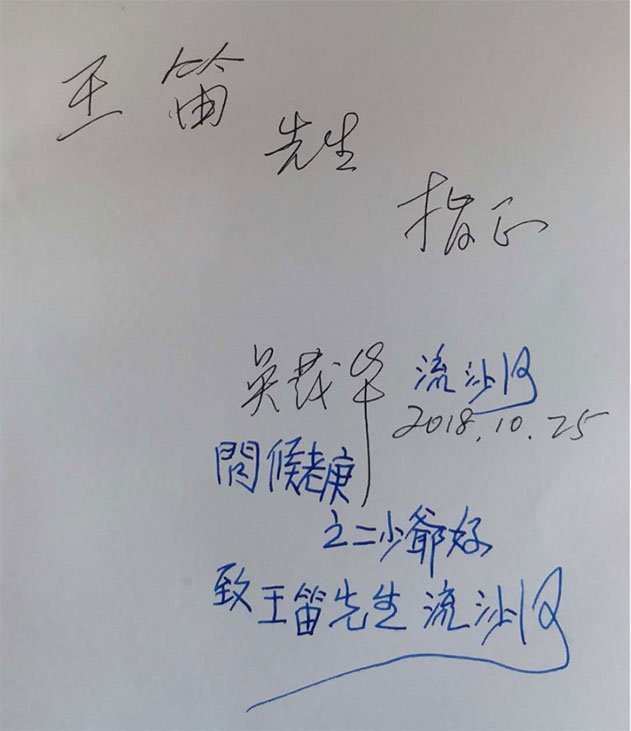 王笛
先生
指正
吴茂华 流沙河
2018.10.25
問候老庚
之二少爺好
致王笛先生 流沙河